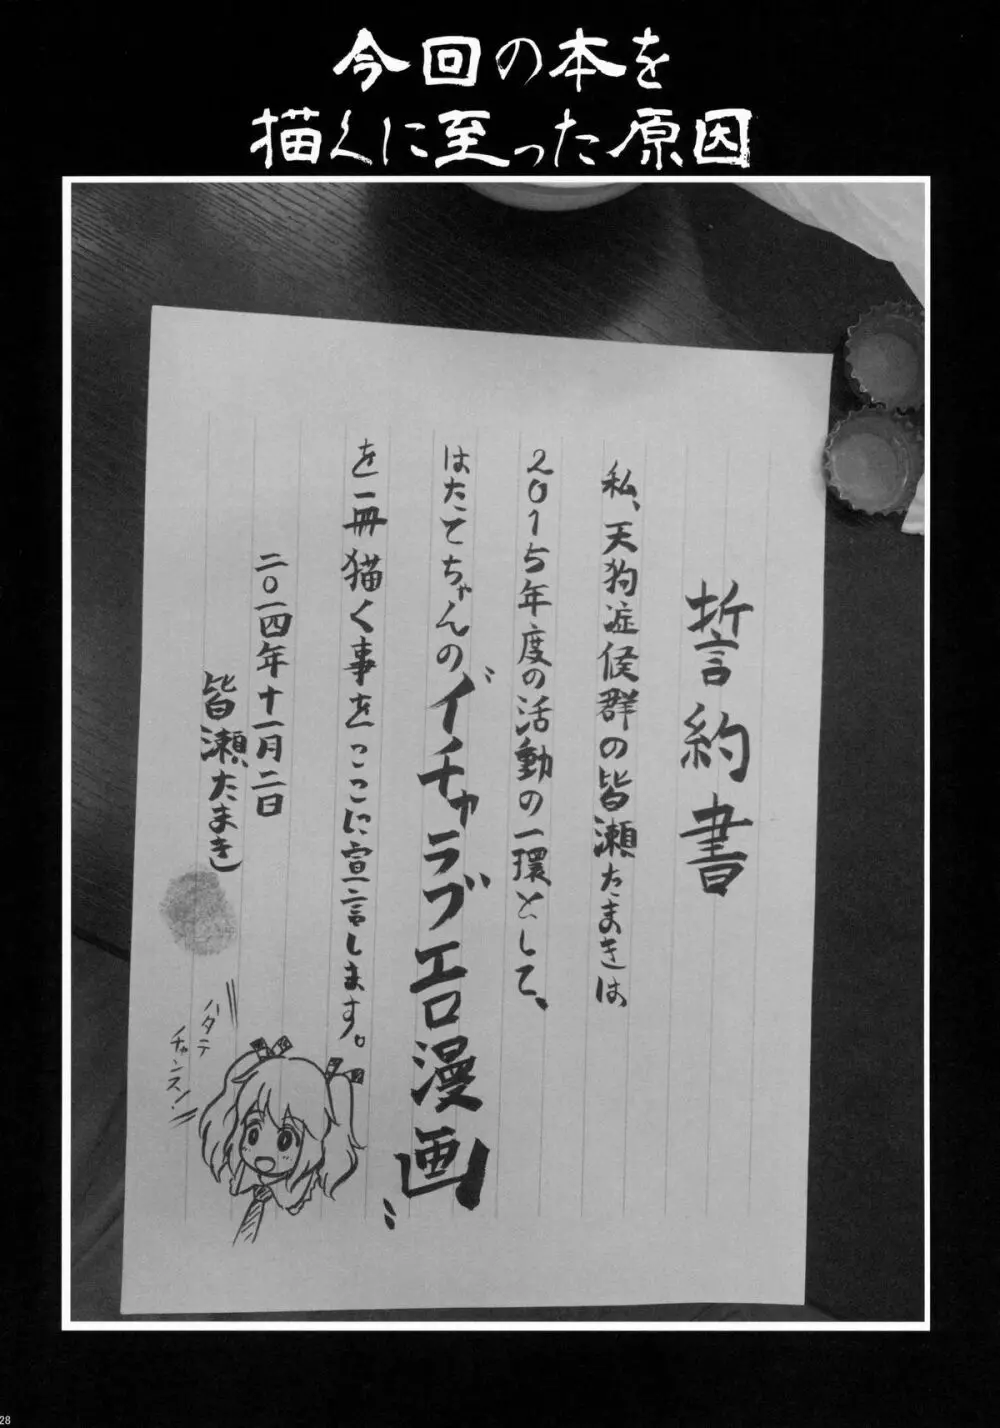 今回の本を
描くに至った原因
誓約書
私、天狗症候群の皆瀬たまきは
2015年度の活動の一環として、
はたてちゃんの〝イチャラブエロ漫画〟
を一冊猫く事をここに宣言します。
二〇一四年十一月二日
皆瀬たまき
ハタテ
チャンスン!
28